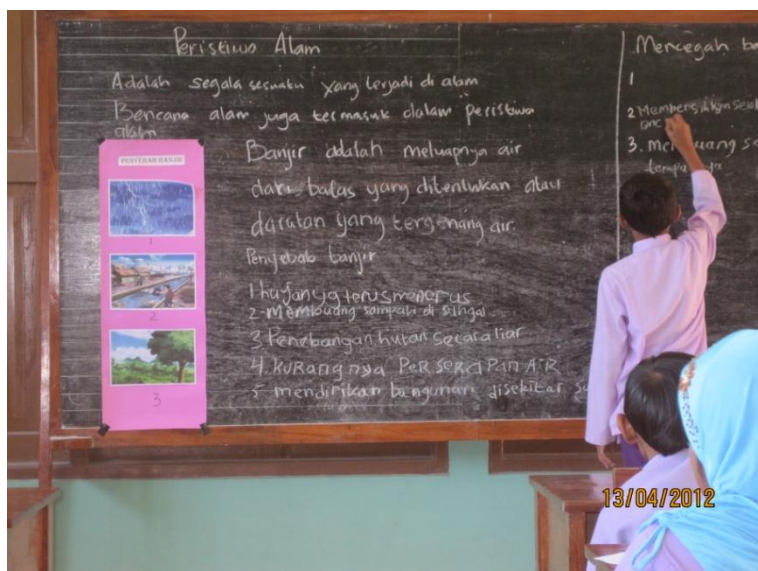 Peristiwa Alam
Adalah segala sesuatu yang terjadi di alam
Bencana alam juga termasuk dalam peristiwa
alam
PENYEBAB BANJIR
1
2
3
Banjir adalah meluapnya air
dari batas yang ditentukan atau
daratan yang tergenang air.
Penyebab banjir
1 hujan yg terus menerus
2 - Membuang sampah di sungai
3 Penebangan hutan secara liar
4. KURANG nya PERSERAPAN AIR
5 mendirikan bangunan disekitar
Mencegah
1
2 Membersihkan
3.
13/04/2012